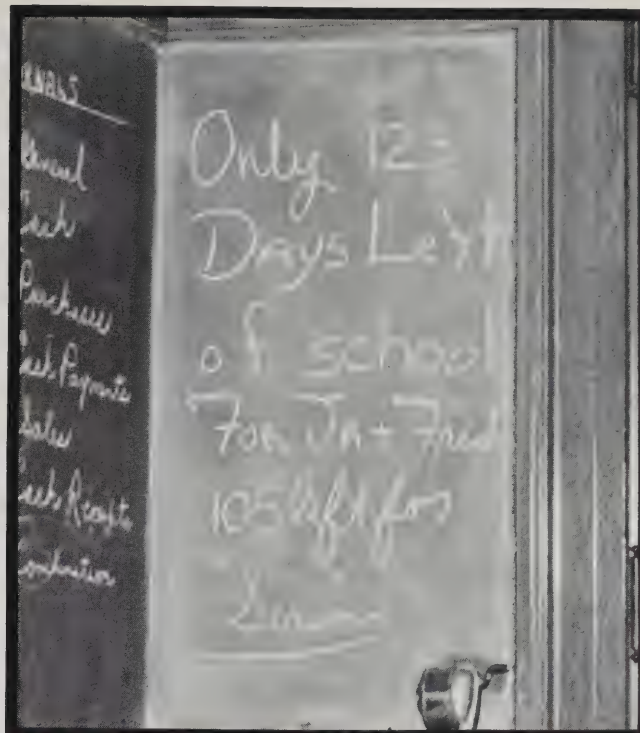 General
Cash
Purchases
Cash Payments
Sales
Cash Receipts
Combination
Only
Days Left
of school
For
105 left for